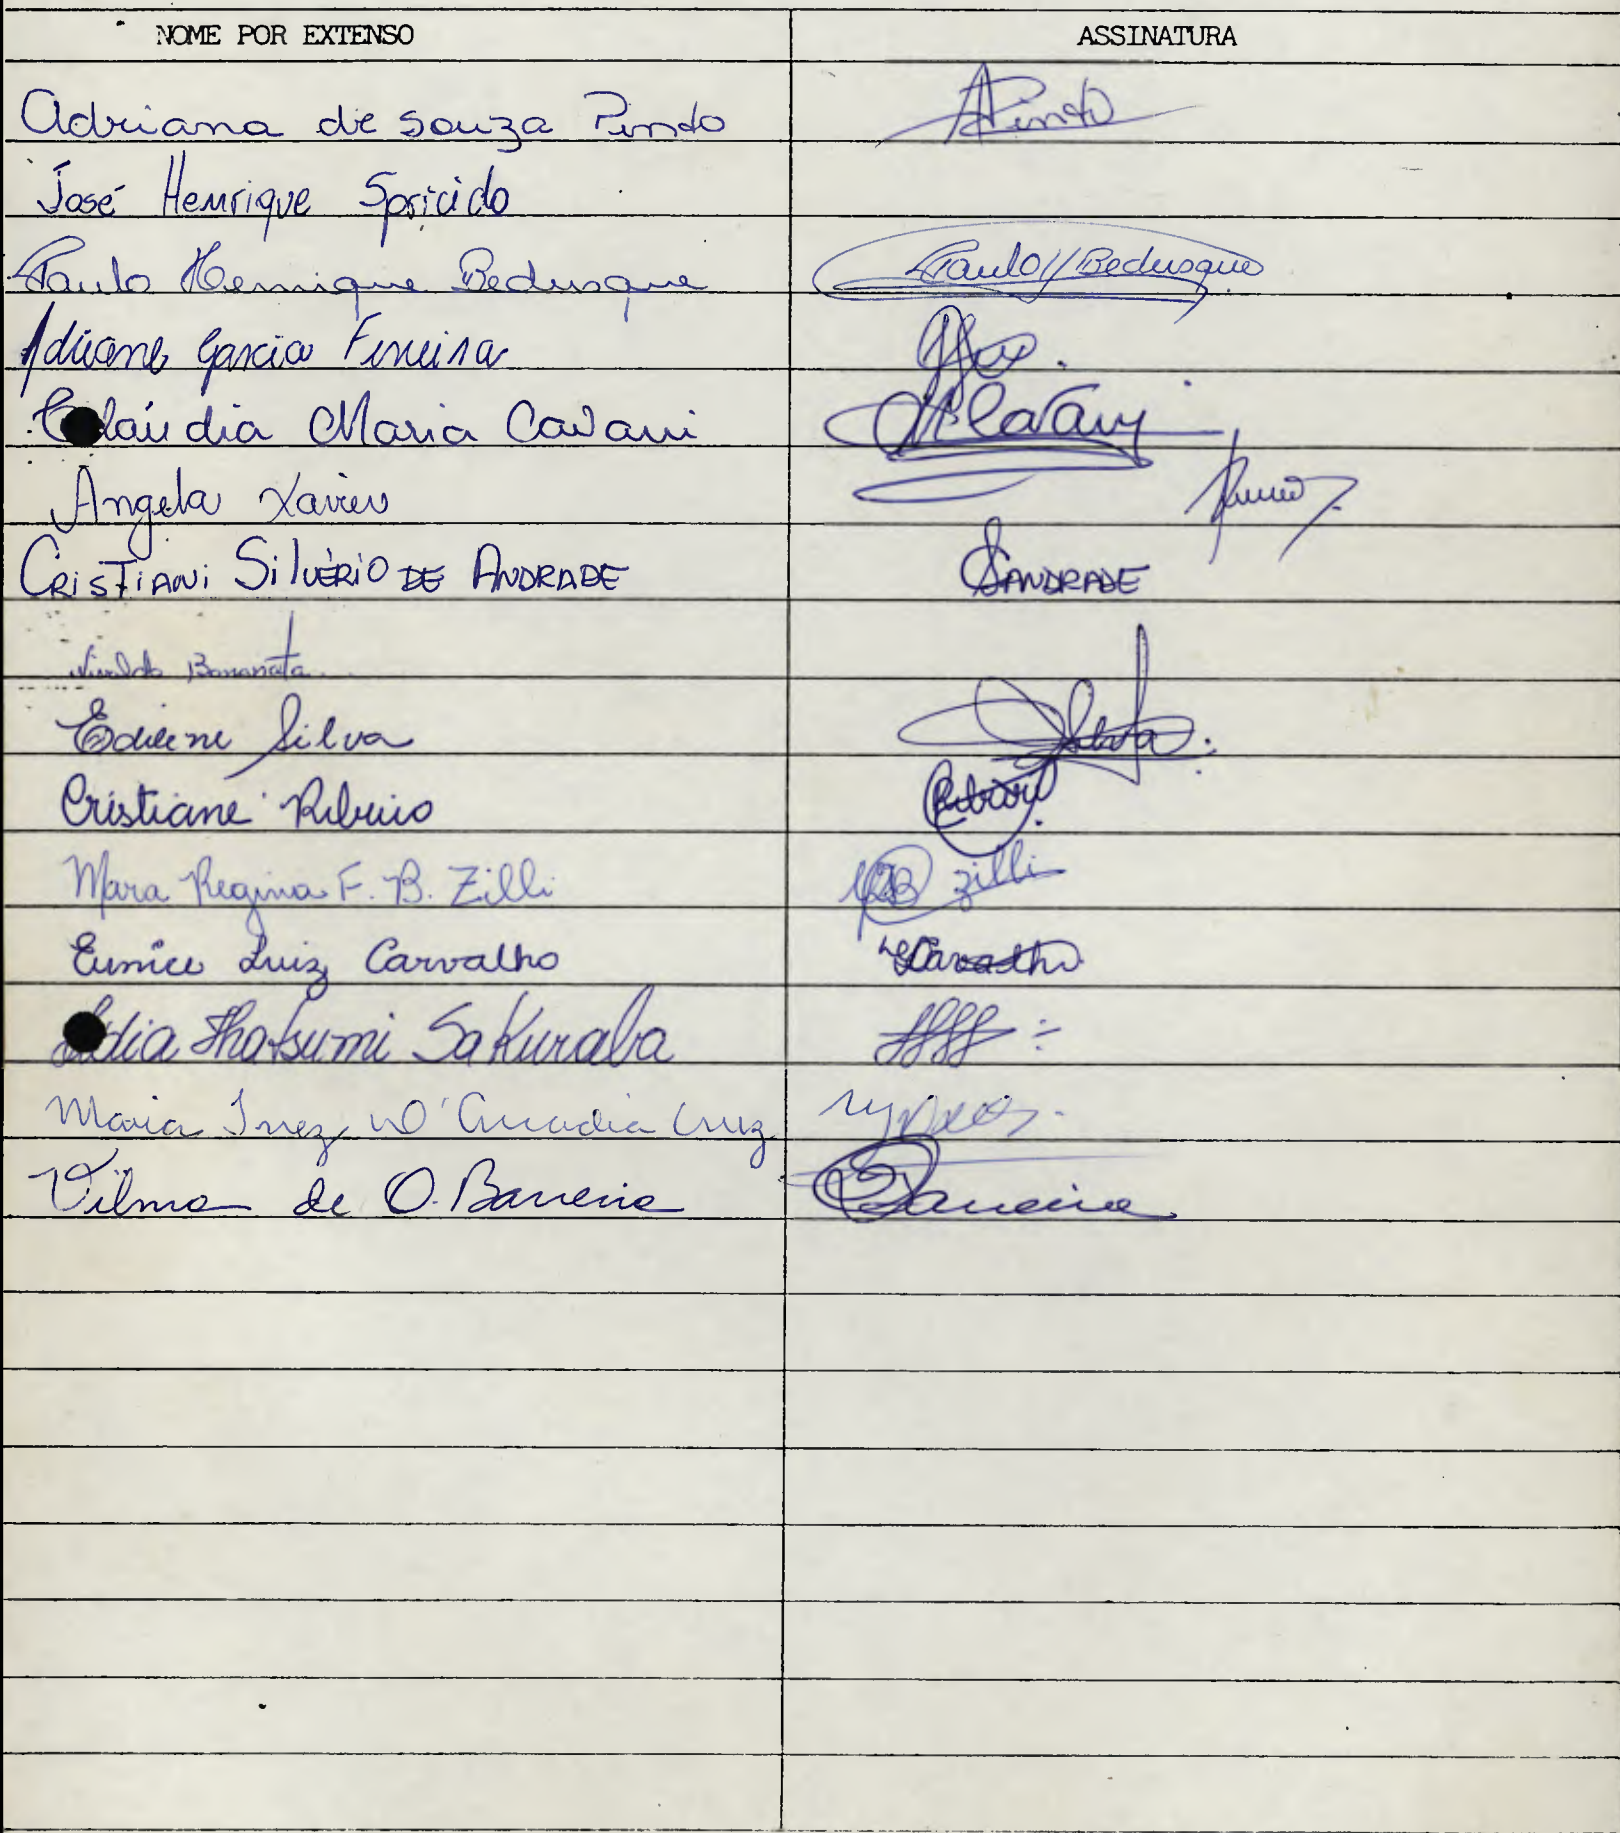 NOME POR EXTENSO ASSINATURA
Adriana de Souza Pinto APinto
José Henrique Sposicido
Paulo Henrique Bedusque Paulo H Bedusque
Adriane Garcia Ferreira
Claúdia Maria Cavani MCavani
Angela Xavier
CRISTIANI SilVÉRIO DE ANDRADE SANDRADE
Nivaldo Bonanata
Edilene Silva
Cristiane Ribeiro Ribeiro
Mara Regina F. B. Zilli Zilli
Eunice Luiz Carvalho Carvalho
Lídia Thatsumi Sakuraba
Maria Inez D'Arcadia Cruz
Vilma de O. Barreira Barreira